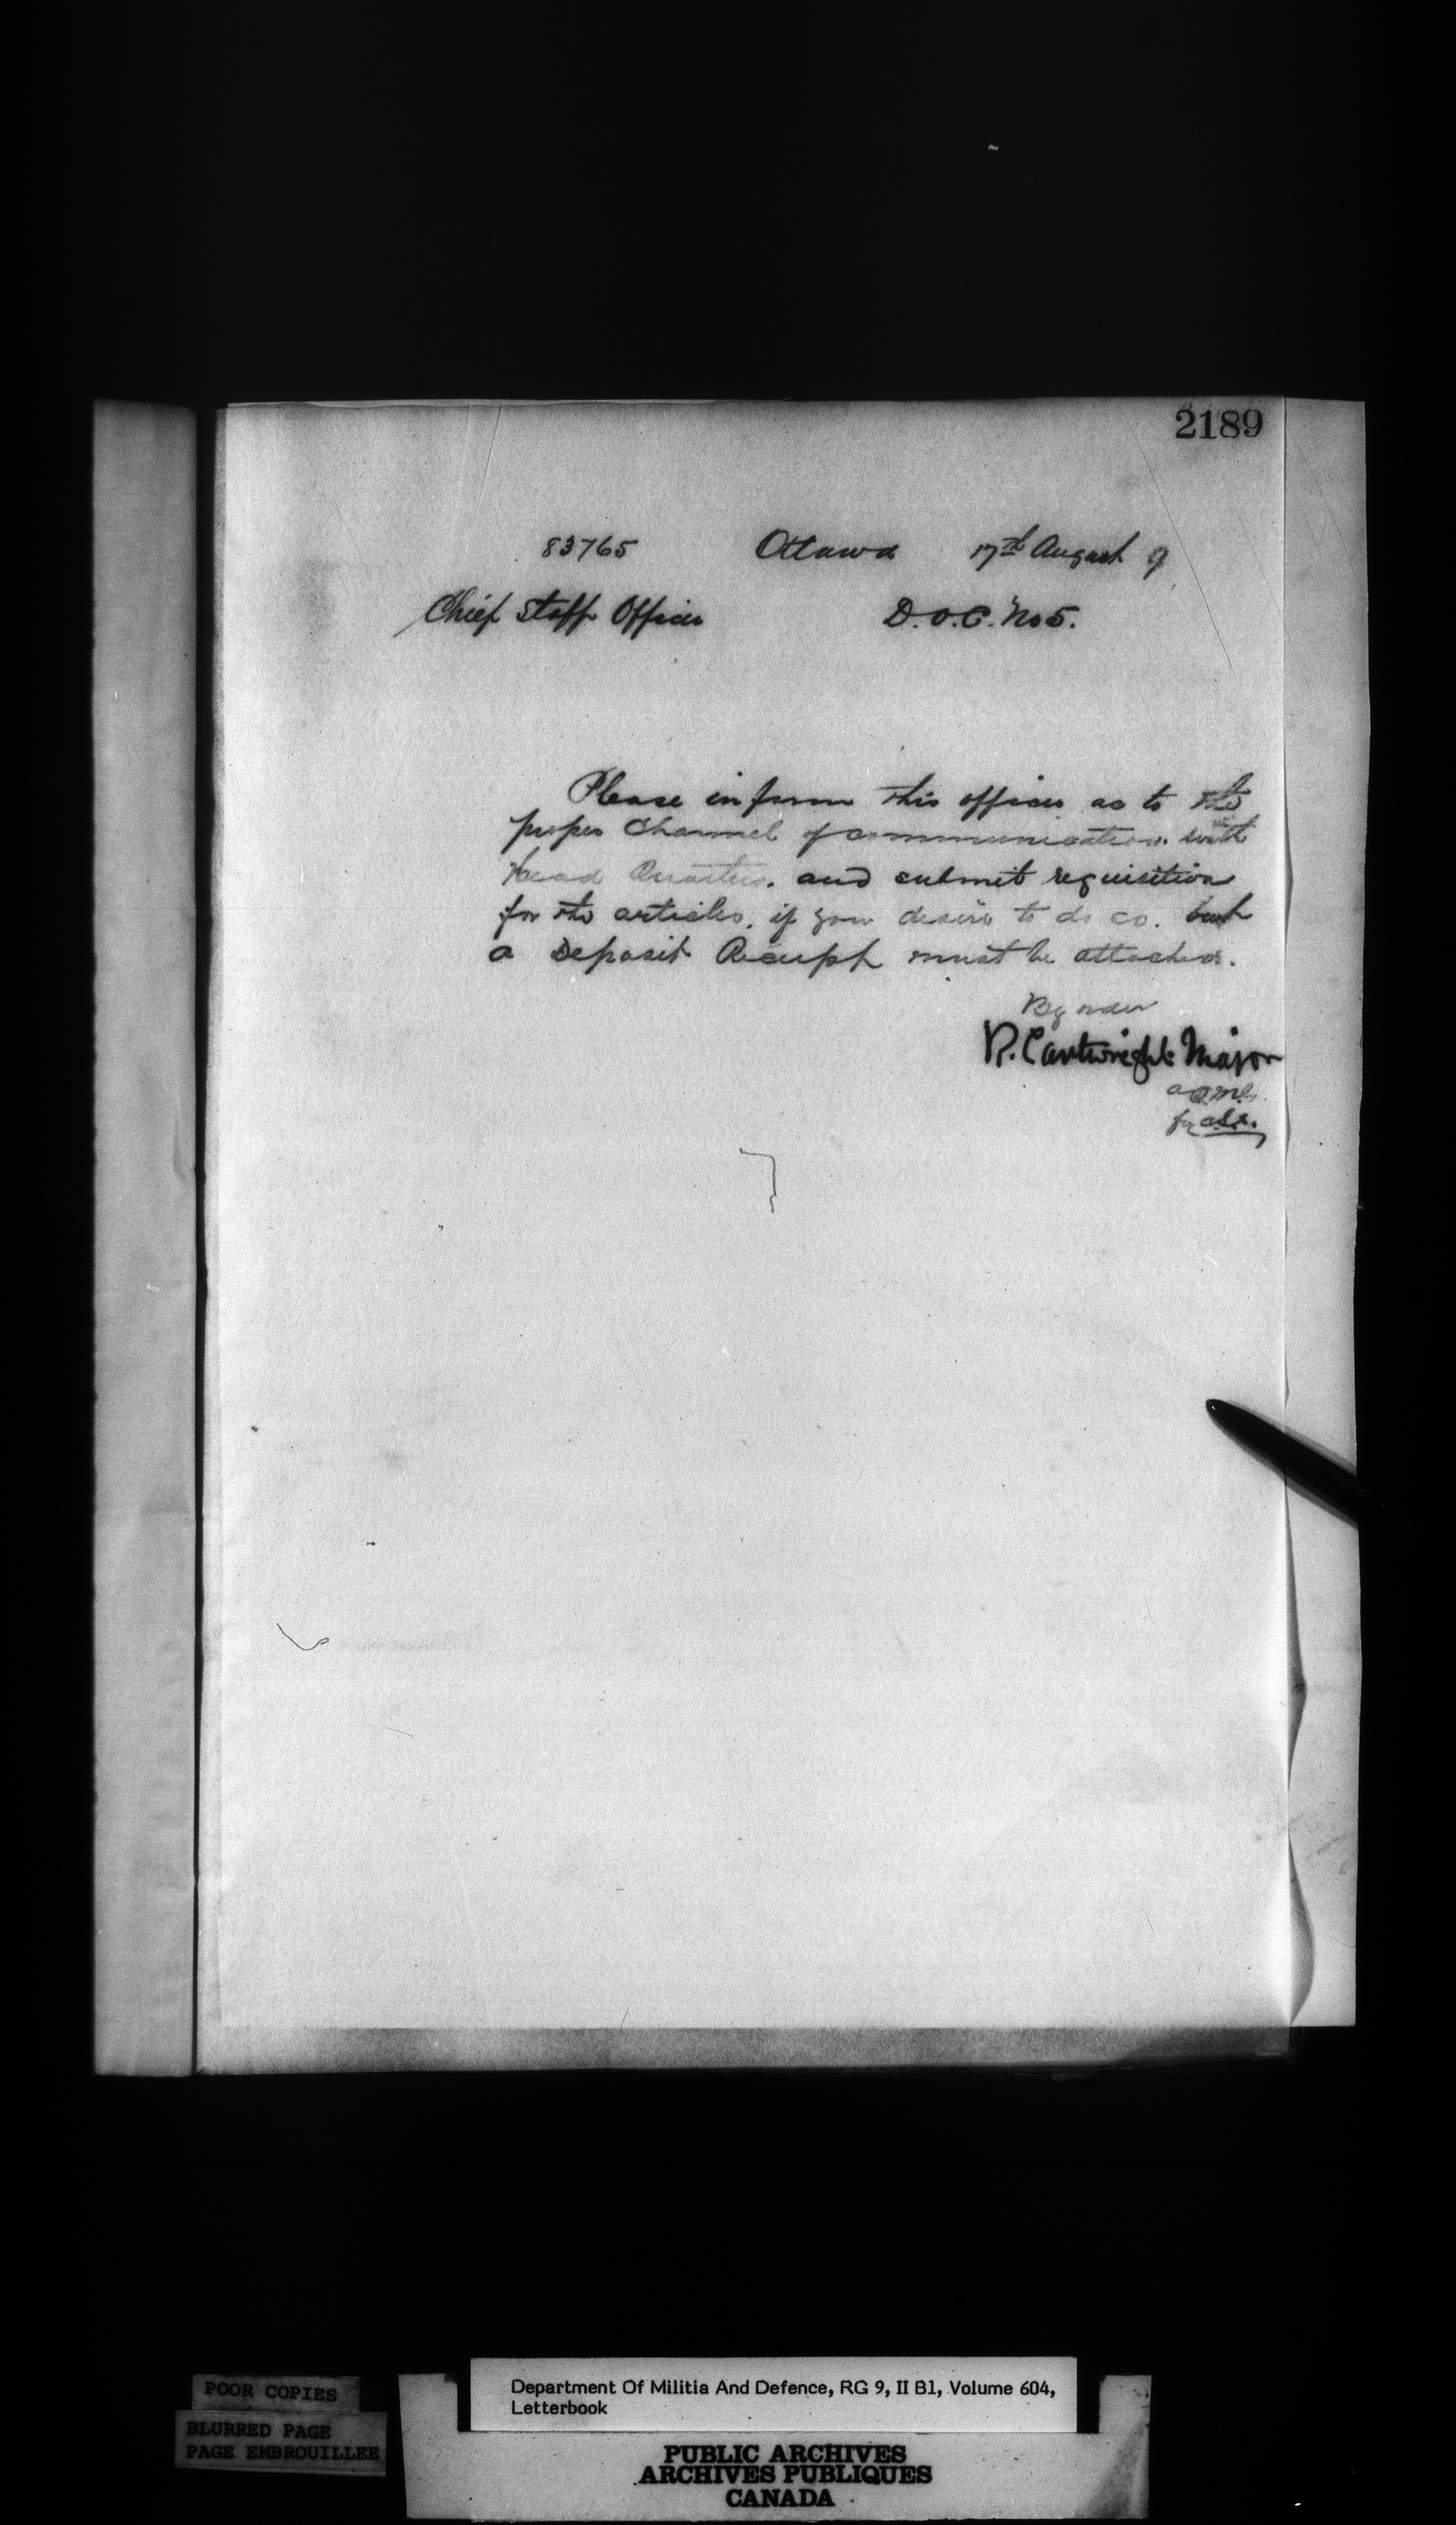 2189
83765 Ottawa 17th August 9
Chief Staff Officer D.O.C. No 5.
Please inform this officer as to the
proper Channel of communication with
Head Quarters. and submit requisition
for the articles, if you desire to do so. but
a Deposit Receipt must be attached.
By order
R. Cartwright Major
for
POOR COPIES
BLURRED PAGE
PAGE EMBROUILLEE
Department Of Militia And Defence, RG 9, II B1, Volume 604,
Letterbook
PUBLIC ARCHIVES
ARCHIVES PUBLIQUES
CANADA